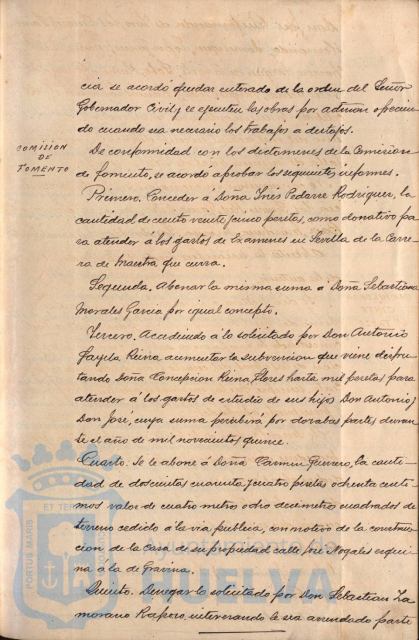 cia se acordó quedar enterado de la orden del Señor
Gobernador Civil y se ejecuten las obras por admon o
do cuando sea necesario los trabajos a destajos.
COMISION
DE
FOMENTO
De conformidad con los dictamenes de la Comision
de fomento, se acordó aprobar los siguientes informes.
Primero. Conceder á Doña Inés Rodriguez, la
cantidad de ciento veinte y cinco pesetas, como donativo pa
ra atender á los gastos de Examenes en Sevilla de la Carre
ra de Maestra que cursa.
Segunda. Abonar la misma suma á Doña Sebastiana
Morales Garcia por igual concepto.
Tercero. Accediendo á lo solicitado por Don Antonio
Reina aumentar la subvencion que viene disfru
tando Doña Concepcion Reina Flores hasta mil pesetas para
atender á los gastos de estudio de sus hijos Don Antonio y
Don José, cuya suma percibirá por dozabas partes duran
te el año de mil novecientos quince.
Cuarto. Se le abone á Doña Carmen Guerrero, la canti-
dad de doscientas cuarenta y cuatro pesetas ochenta centi
mos valor de cuatro metros ocho decimetros cuadrados de
terreno cedido á la via publica con motivo de la construc
cion de la Casa de su propiedad calle José Nogales esqui
na a la de Gravina.
Quinto. Denegar lo solicitado por Don Sebastian Za
morano Rapozo, interesando le sea arrendado parte
PORTUS MARIS
ET TERRAE
Ayuntamiento de
HUELVA